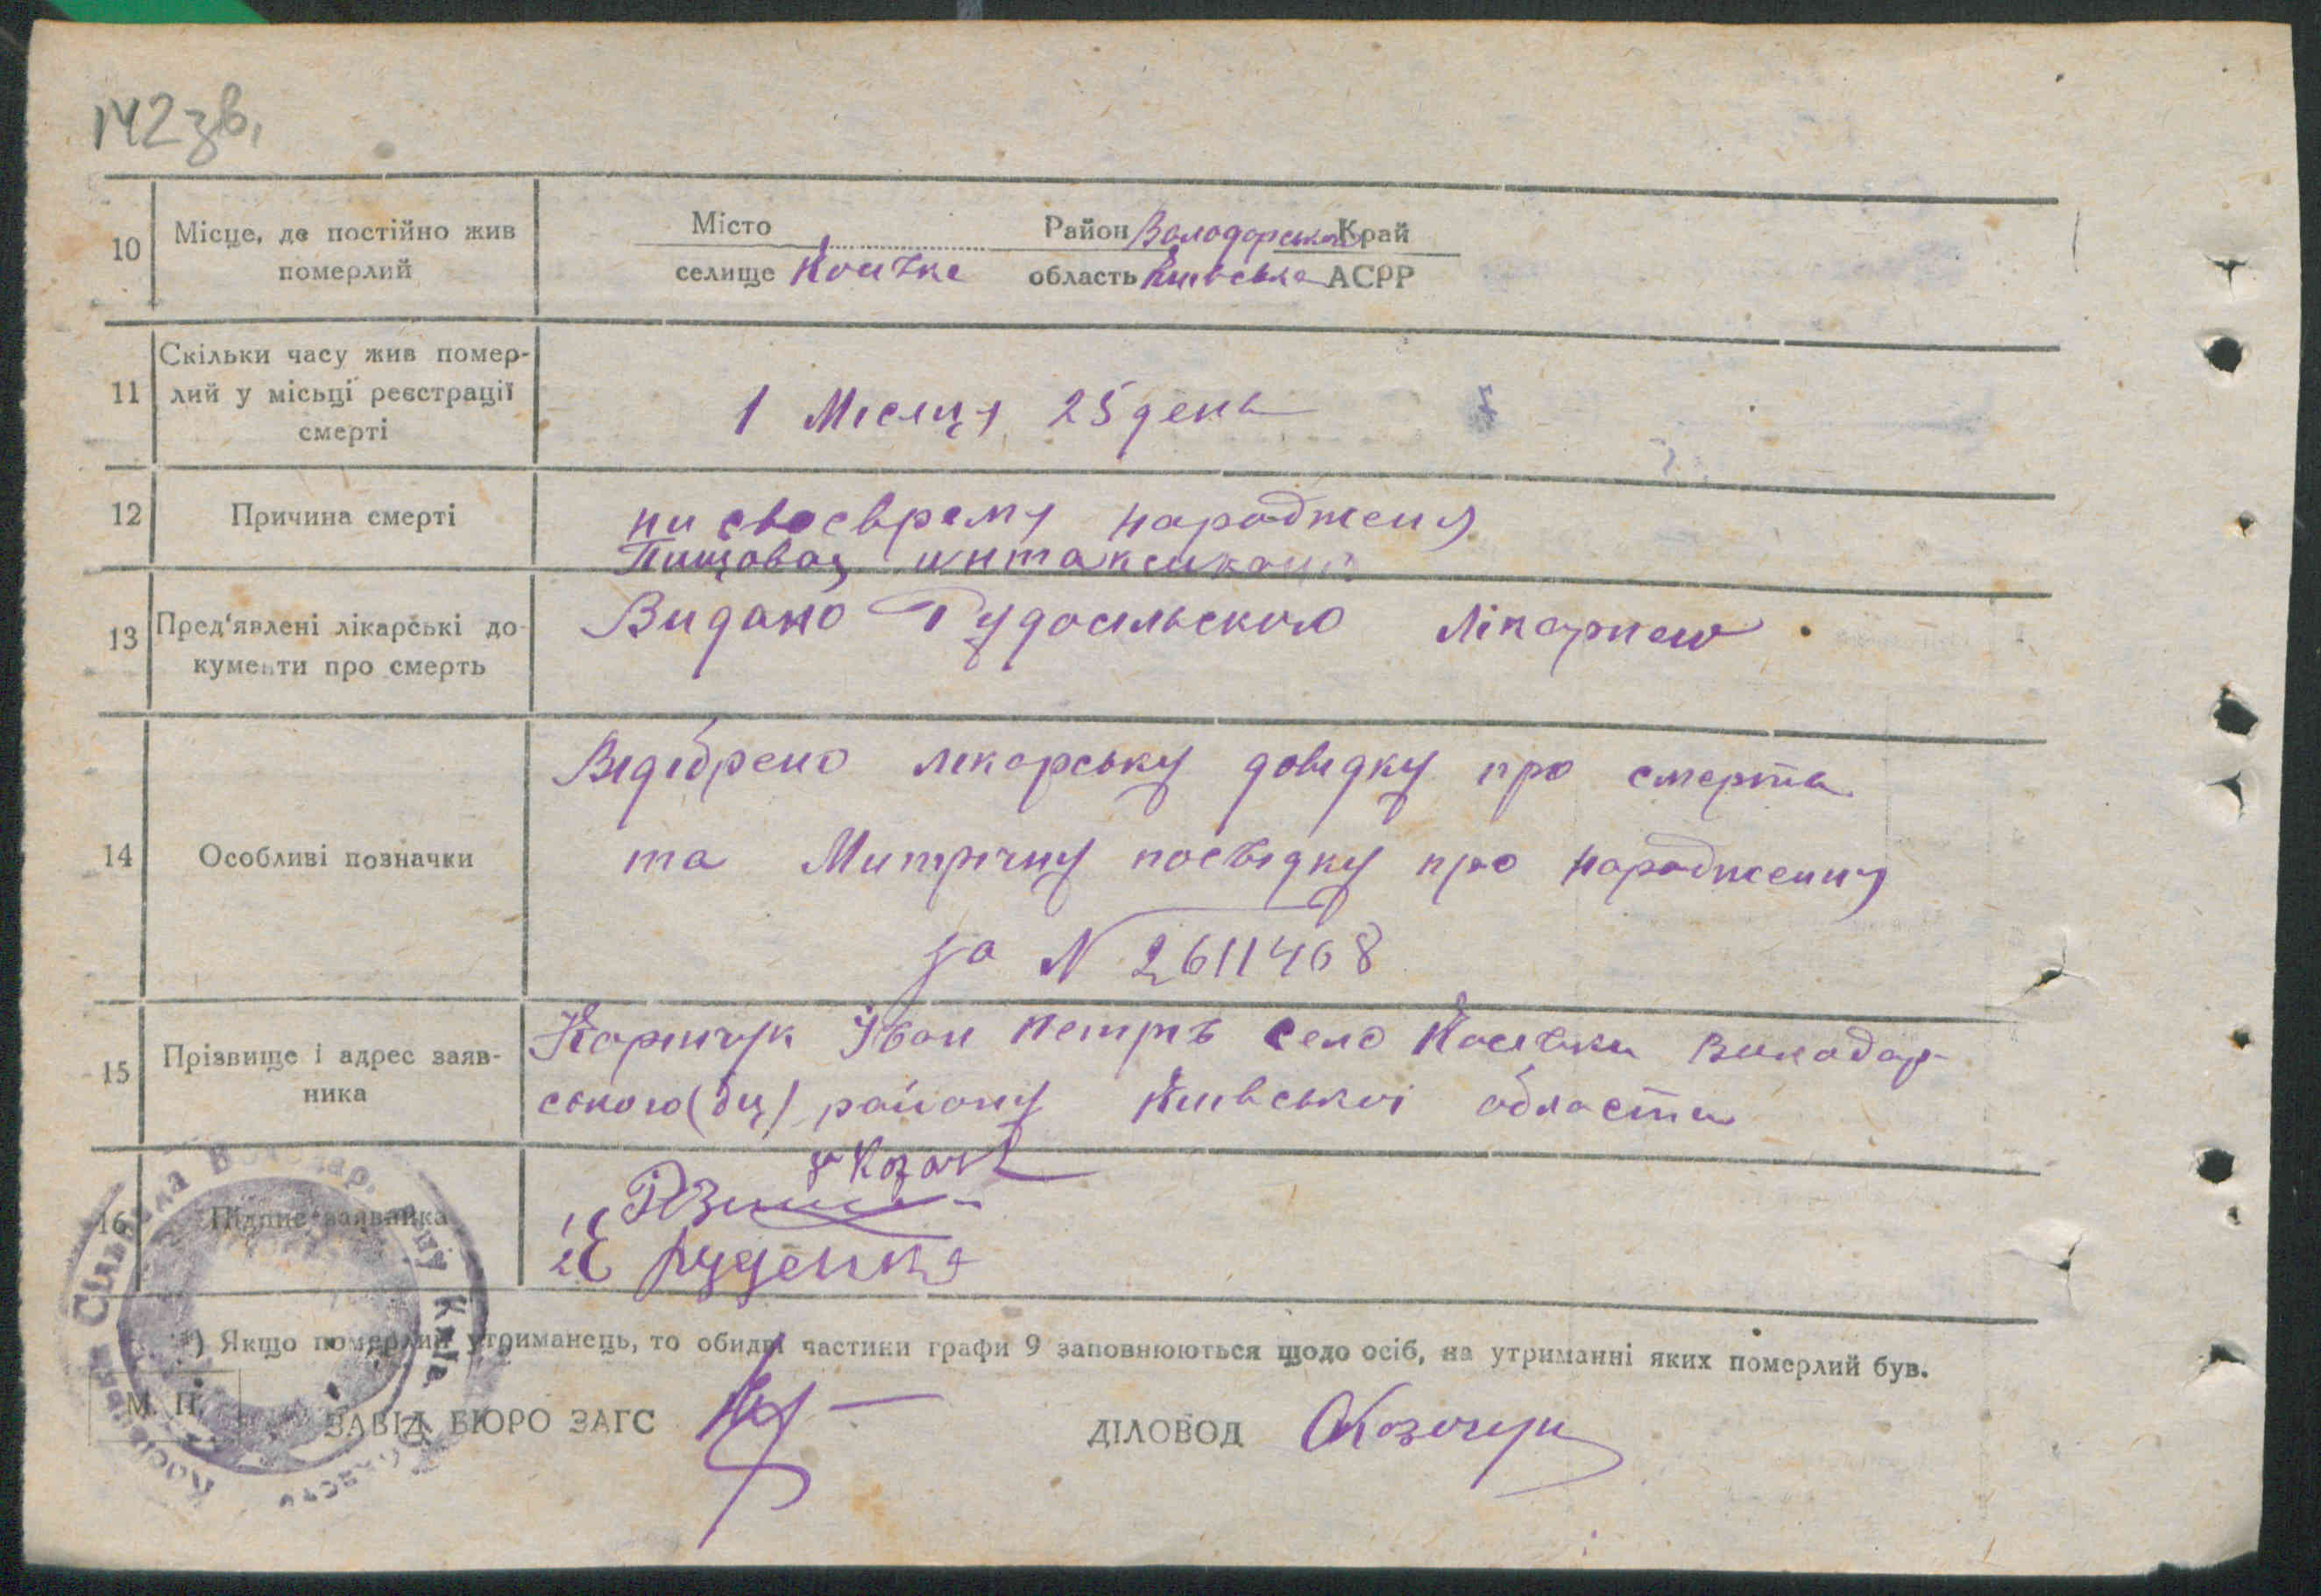 142 зв.
10 Місце, де постійно жив померлий
Місто Район Володарського Край
селище Косівка область Київська АСРР
11 Скільки часу жив помер-
лий у місьці реєстрації
смерті
1 Місяць 25 день
12 Причина смерті
ни своєврему народженя
Пищовая интаксикация
13 Пред'явлені лікарські до-
кументи про смерть
Видано Рудосільською лікарнею
14 Особливі позначки
Відібрено лікарську довідку про смерть
та Митричну посвідку про народження
за N 2611468
15 Прізвище і адрес заяв-
ника
Іван Петрів село Косівки Володар-
ського (ць) району Київської области
16 Підпис заявника
за Козак
1)
2) Руденко
*) Якщо померлий утриманець, то обидві частини графи 9 заповнюються щодо осіб, на утриманні яких померлий був.
М. П. ЗАВІД. БЮРО ЗАГС ДІЛОВОД